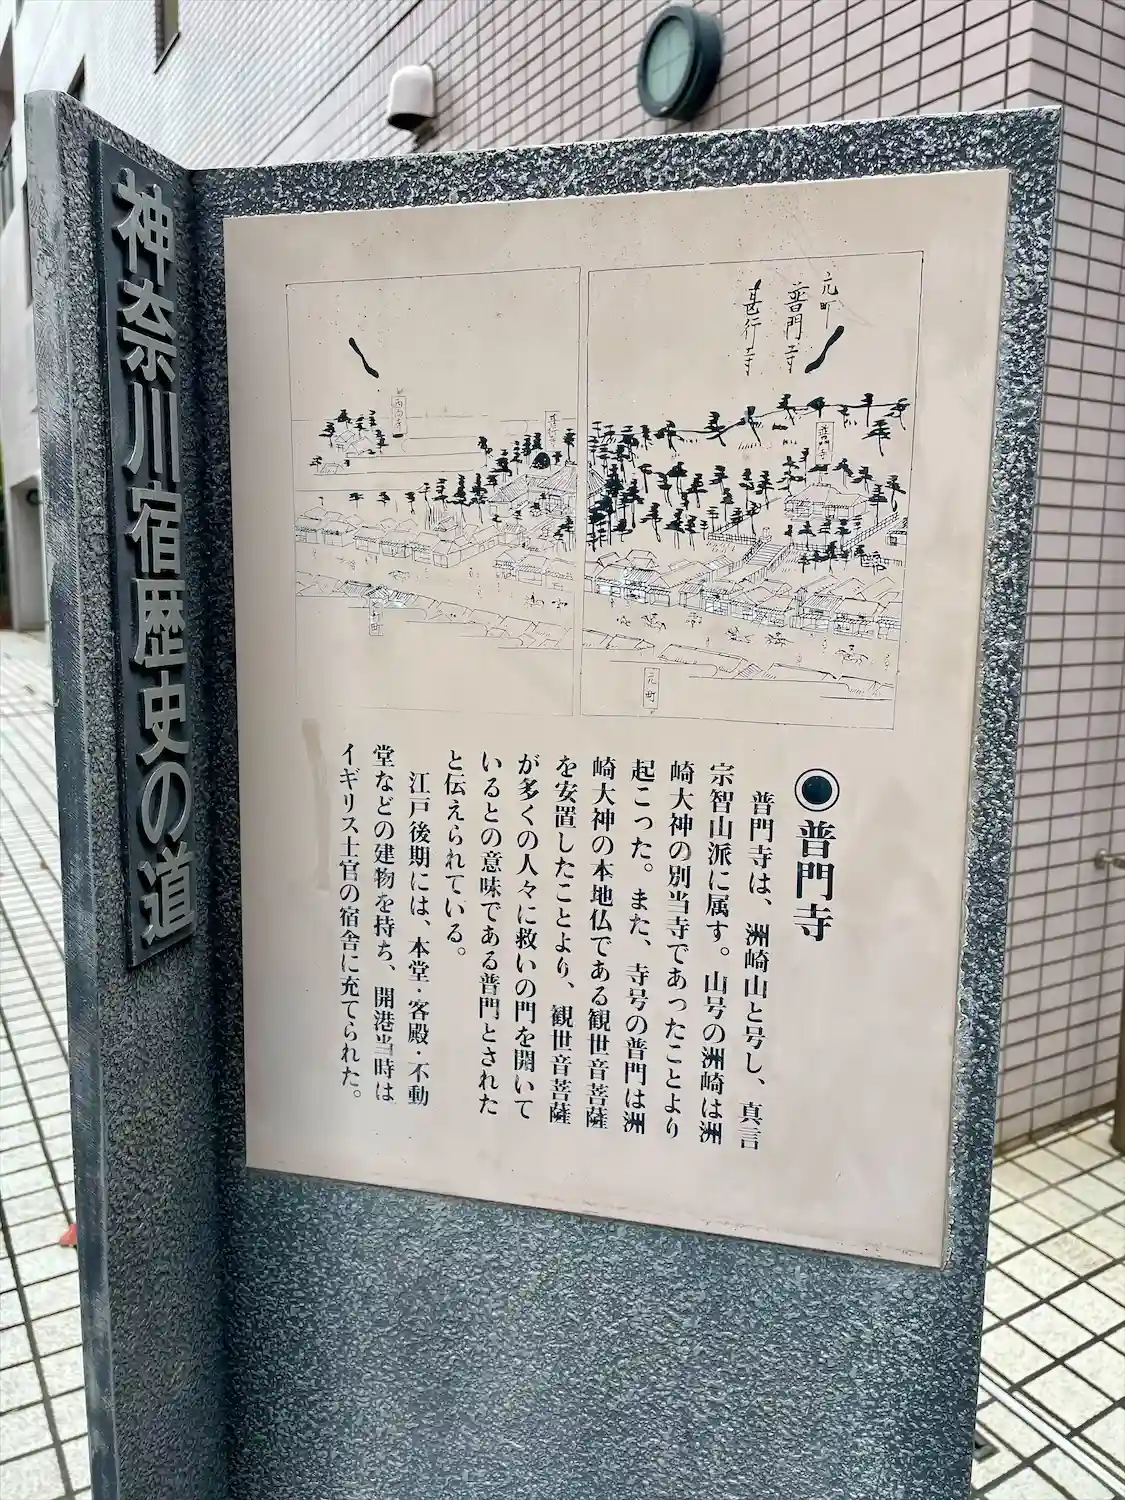 神奈川宿歴史の道
元町
普門寺
甚行寺
普門寺
元町
◉普門寺
普門寺は、洲崎山と号し、真言
宗智山派に属す。山号の洲崎は洲
崎大神の別当寺であったことより
起こった。また、寺号の普門は洲
崎大神の本地仏である観世音菩薩
を安置したことより、観世音菩薩
が多くの人々に救いの門を開いて
いるとの意味である普門とされた
と伝えられている。
江戸後期には、本堂・客殿・不動
堂などの建物を持ち、開港当時は
イギリス士官の宿舎に充てられた。